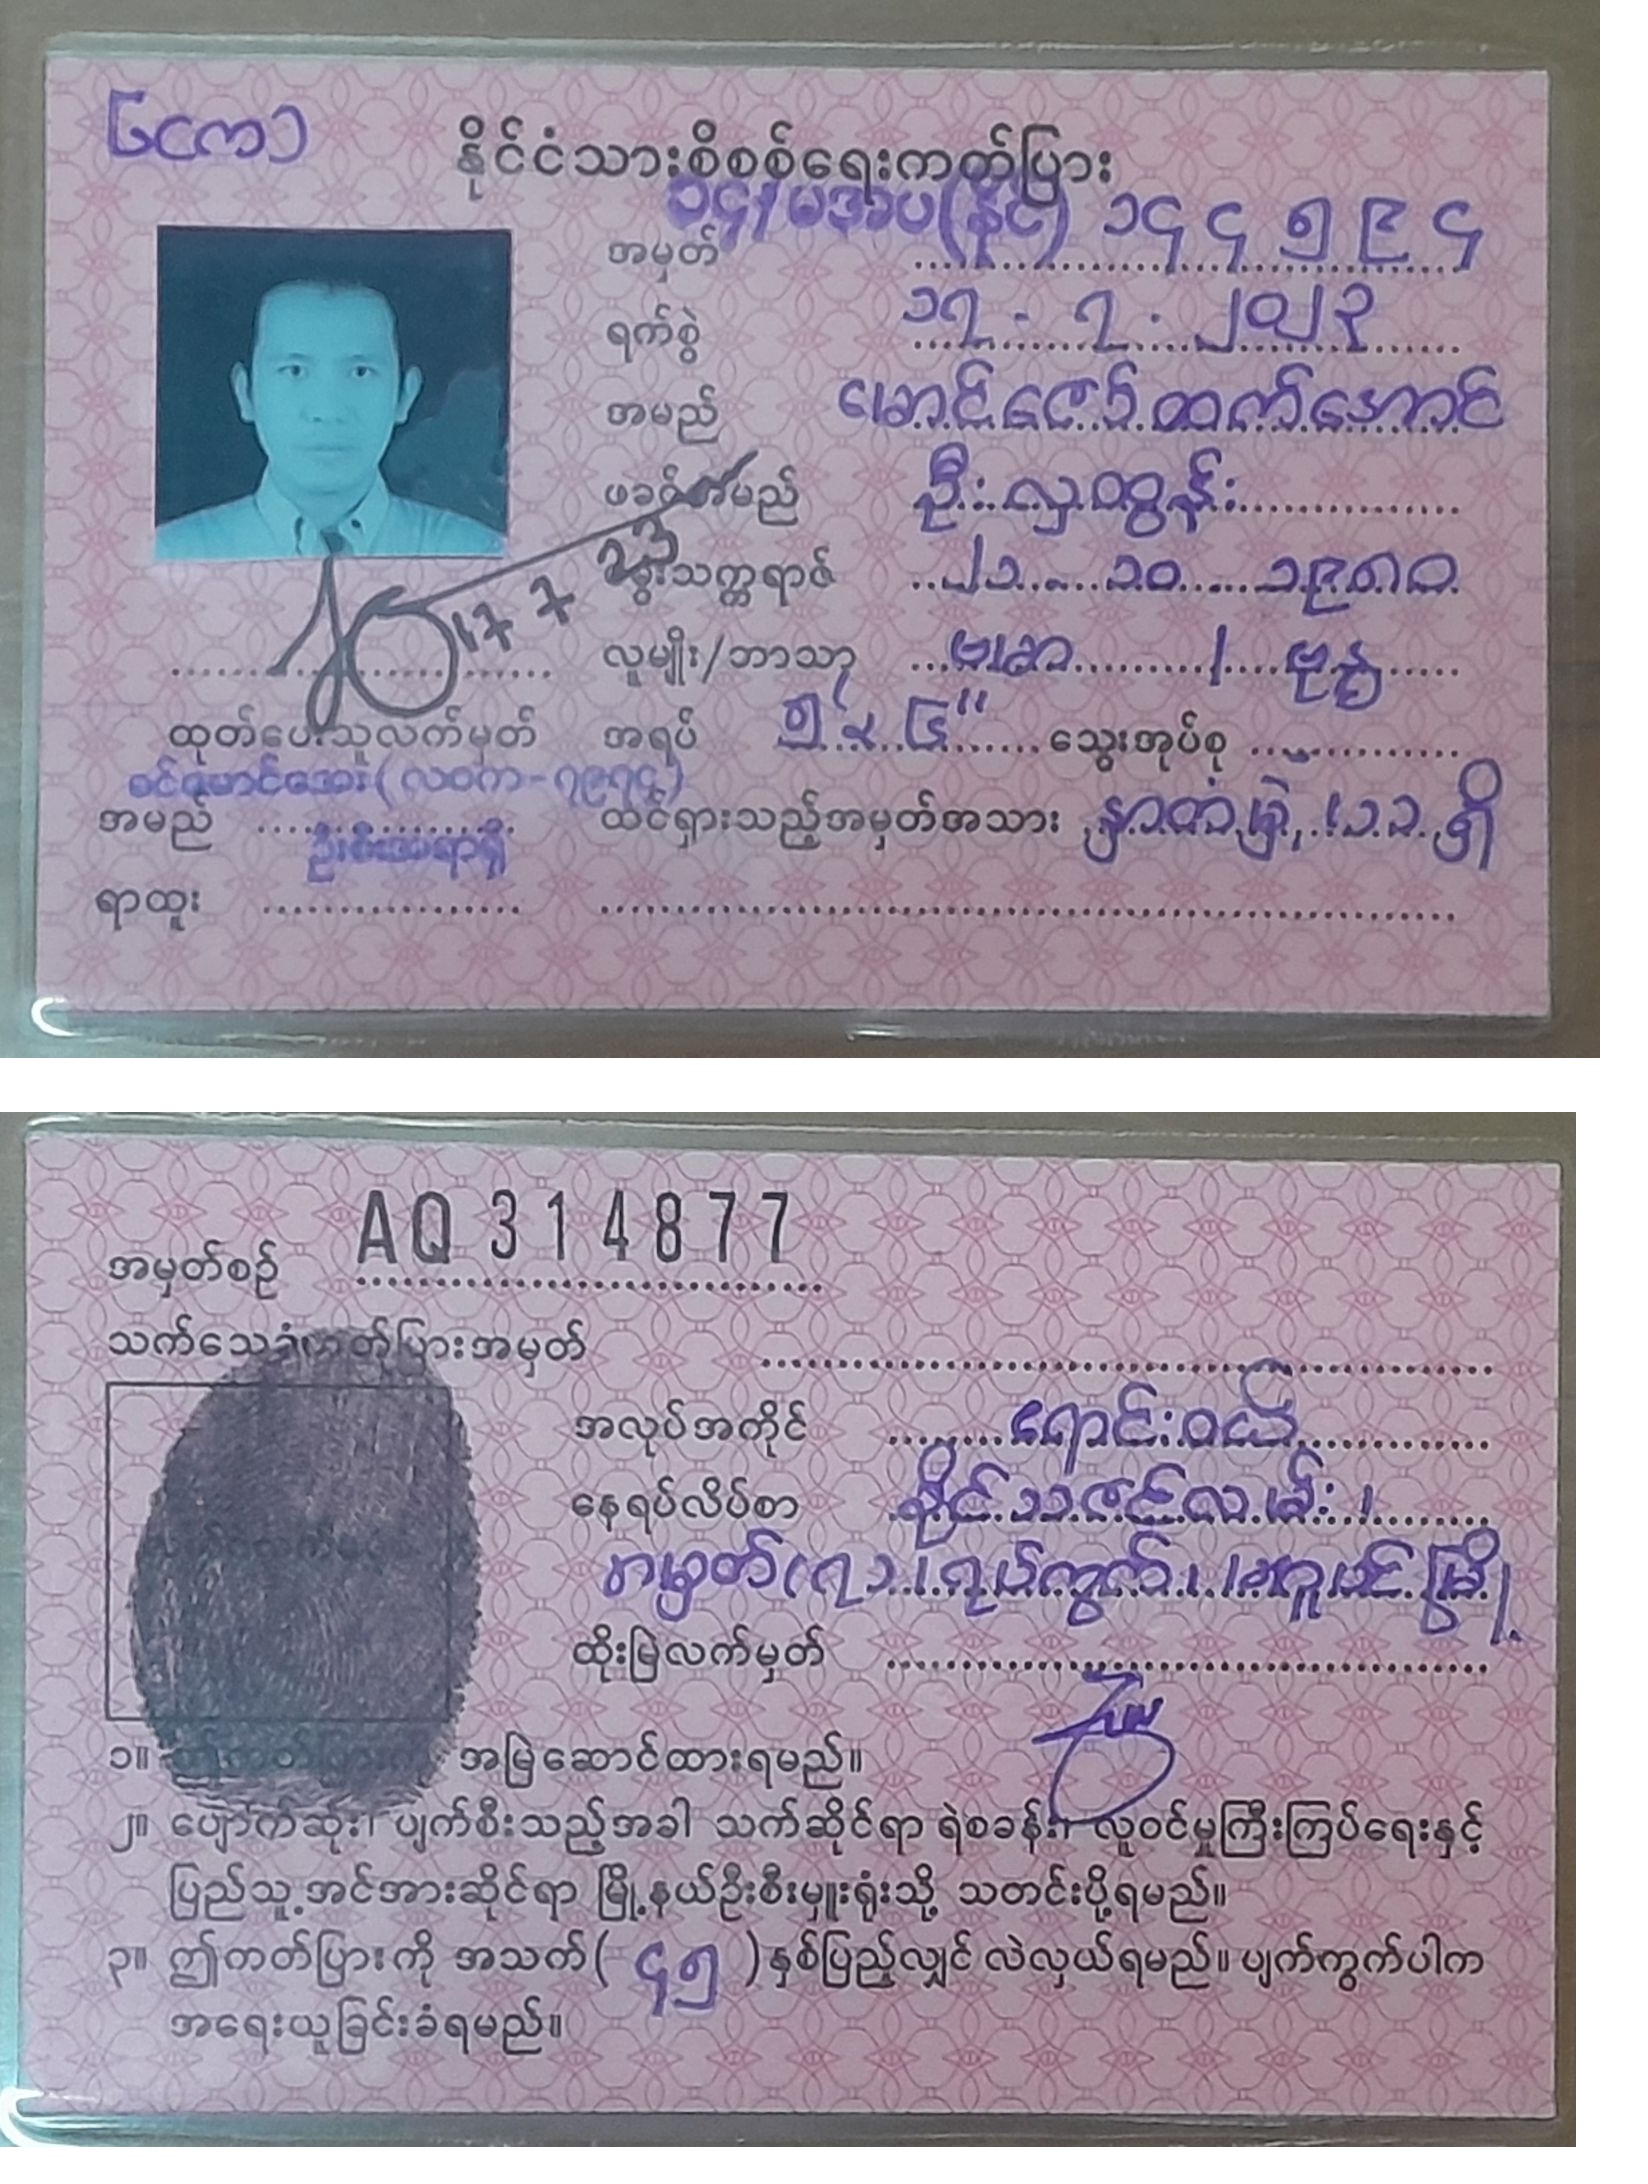 နိုင်ငံသားစိစစ်ရေးကတ်ပြား
အမှတ် ၁၄/မအပ(နိုင်) ၁၄၄၅၉၄
ရက်စွဲ ၁၇.၇.၂၀၂၃
အမည် မောင်ဇော်ထက်အောင်
ဖခင်အမည် ဦးလှထွန်း
မွေးသက္ကရာဇ် ၂၁.၁၀.၁၉၈၀
17 7 23
လူမျိုး/ဘာသာ ဗမာ / ဗုဒ္ဓ
ထုတ်ပေးသူလက်မှတ် အရပ် ၅' ၆" သွေးအုပ်စု -
အမည် ခင်မောင်အေး(လဝက-၇၉၇၄) ထင်ရှားသည့်အမှတ်အသား ရှိ
ရာထူး ဦးစီးအရာရှိ
အမှတ်စဉ် AQ 314877
သက်သေခံကတ်ပြားအမှတ်
အလုပ်အကိုင် ရောင်းဝယ်
နေရပ်လိပ်စာ လမ်း၊
အမှတ်(၇)ရပ်ကွက်၊ မအူပင်မြို့
ထိုးမြဲလက်မှတ်
၁။ အမြဲဆောင်ထားရမည်။
၂။ ပျောက်ဆုံး၊ ပျက်စီးသည့်အခါ သက်ဆိုင်ရာ ရဲစခန်း၊ လူဝင်မှုကြီးကြပ်ရေးနှင့်
ပြည်သူ့အင်အားဆိုင်ရာ မြို့နယ်ဦးစီးမှူးရုံးသို့ သတင်းပို့ရမည်။
၃။ ဤကတ်ပြားကို အသက်( ၄၅ )နှစ်ပြည့်လျှင် လဲလှယ်ရမည်။ ပျက်ကွက်ပါက
အရေးယူခြင်းခံရမည်။